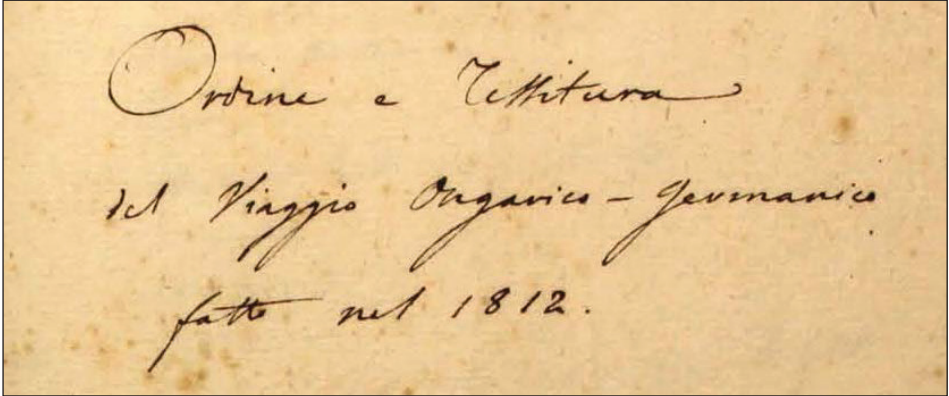 Ordine e Tessitura
del Viaggio Ongarico - Germanico
fatto nel 1812.